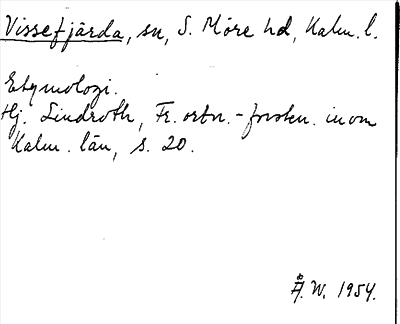 Vissefjärda, sn, S. Möre hd, Kalm. l.
Etymologi.
Hj. Lindroth, Fr. ortn.-forskn. inom
Kalm. län, s. 20.
Å. W. 1954.